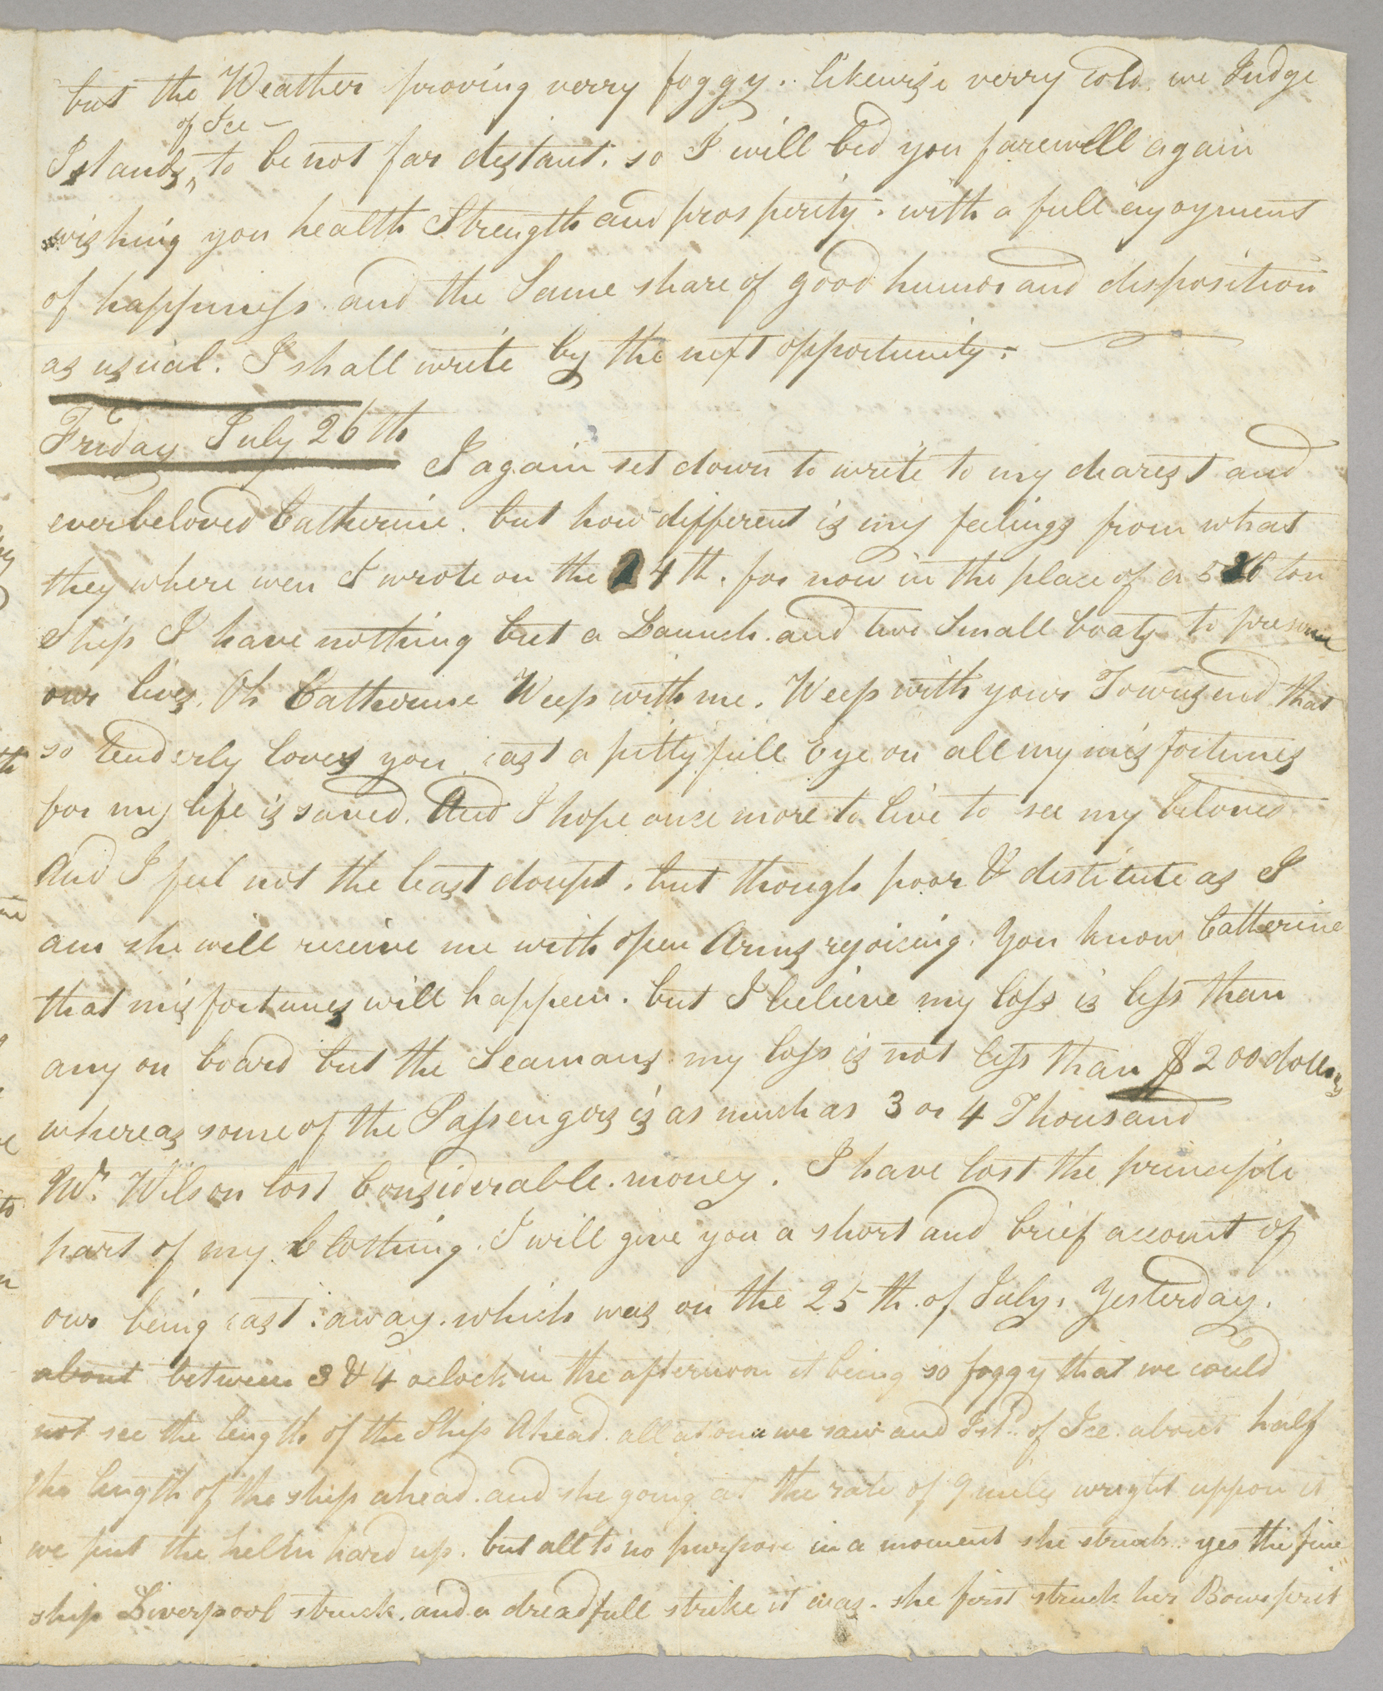 but the Weather proving verry foggy. likewise verry Cold. we Judge
of Ice –
Islands, to be not far destant. so I will bid you farewell again
wishing you health Strength and prosperity. with a full enjoyment
of happiness. and the Same share of good humor and disposition
as usual. I shall write by the next opportunity.
Friday July 26th
I again set down to write to my dearest and
everbeloved Catherine. but how different is my feelings from what
they where wen I wrote on the 24th. for now in the place of a ton
Ship I have nothing but a Launch. and two Small boats to preserve
our lives. Oh Catherine Weep with me. Weep with your Townsend that
so tenderly loves you cast a pittyfull Eye on all my misfortunes
for my life is saved. And I hope once more to live to see my beloved
And I feel not the least doupt. but though poor & destitute as I
am she will receive me with open Arms rejoicing. You know Catherine
that misfortunes will happen. but I believe my loss is less than
any on board but the Seamans. my loss is not less than $200 dollars
whereas some of the Passengers is as much as 3 or 4 Thousand
Mr. Wilson lost Considerable. money. I have lost the principle
part of my Clothing. I will give you a short and brief account of
our being cast away. which was on the 25th. of July. Yesterday.
about between 3 & 4 oclock in the afternoon it being so foggy that we could
not see the length of the Ship Ahead. all at once we saw and Isd. of Ice about half
the length of the ship ahead. and she going at the rate of 9 miles wright uppon it
we put the hellm hard up. but all to no purpose in a moment she struck. yes the fine
ship Liverpool struck. and a dreadfull strike it was. she first struck her Bowsprit